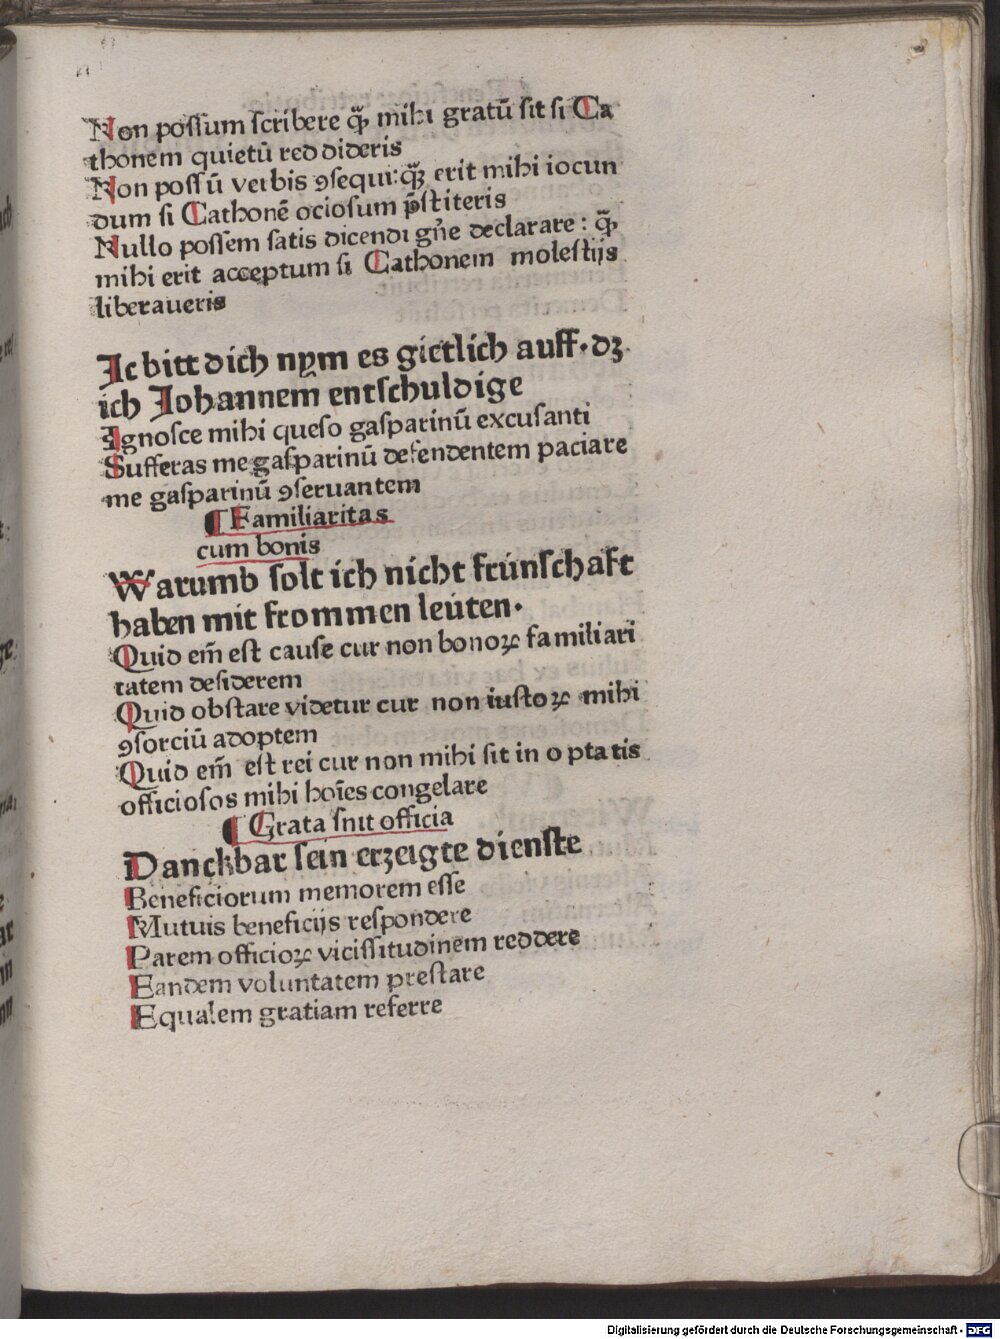 Non possum scribere qȝ̃ mihi gratū sit si Ca
thonem quietū reddideris
Non possū verbis ꝯsequi: qȝ̃ erit mihi iocun
dum si Cathonē ociosum p̄stiteris
Nullo possem satis dicendi gn̄e declarare: qȝ̃
mihi erit acceptum si Cathonem molestijs
liberaueris
Ic bitt dich nym es gietlich auff. dz
ich Johannem entschuldige
Ignosce mihi queso gasparinū excusanti
Sufferas me gasparinū defendentem paciare
me gasparinū ꝯseruantem
¶ Familiaritas
cum bonis
Warumb solt ich nicht frúnschaft
haben mit frommen leúten.
Quid em̄ est cause cur non bonoꝝ familiari
tatem desiderem
Quid obstare videtur cur non iustoꝝ mihi
ꝯsorciū adoptem
Quid em̄ est rei cur non mihi sit in optatis
officiosos mihi hoīes congelare
¶ Grata snit officia
Danckbar sein erzeigte dienste
Beneficiorum memorem esse
Mutuis beneficijs respondere
Parem officioꝝ vicissitudinem reddere
Eandem voluntatem prestare
Equalem gratiam referre
Digitalisierung gefördert durch die Deutsche Forschungsgemeinschaft - DFG